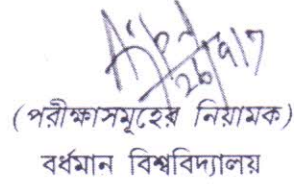 (পরীক্ষাসমূহের নিয়ামক)
বর্ধমান বিশ্ববিদ্যালয়